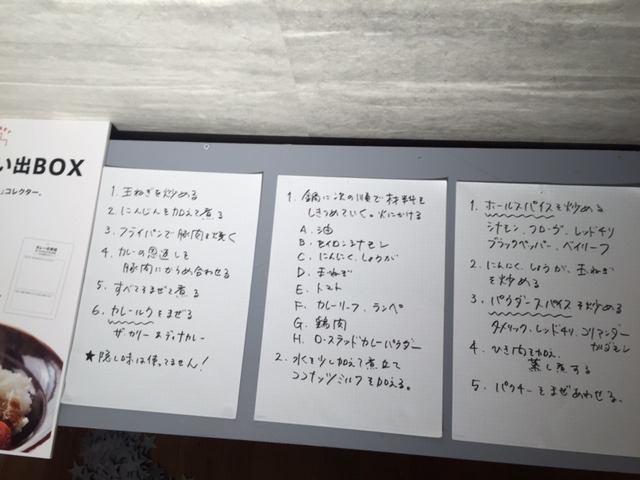 い出BOX
コレクター。
1. 玉ねぎを炒める
2. にんじんを加えて煮る
3. フライパンで豚肉を焼く
4. カレーの恩返しを
豚肉にからめ合わせる
5. すべてをまぜて煮る
6. カレールウをまぜる
ザ・カリー & ディナーカレー
★隠し味は使ってません!
1. 鍋に次の順で材料を
しきつめていく。火にかける
A. 油
B. セイロンシナモン
C. にんにく、しょうが
D. 玉ねぎ
E. トマト
F. カレーリーフ、ランペ
G. 鶏肉
H. ローステッドカレーパウダー
2. 水を少し加えて煮立て
ココナッツミルクを加える。
1. ホールスパイスを炒める
シナモン、クローヴ、レッドチリ
ブラックペッパー、ベイリーフ
2. にんにく、しょうが、玉ねぎ
を炒める
3. パウダースパイスを炒める
ターメリック、レッドチリ、コリアンダー
カルダモン
4. ひき肉を加え、
蒸し煮する
5. パクチーをまぜあわせる。